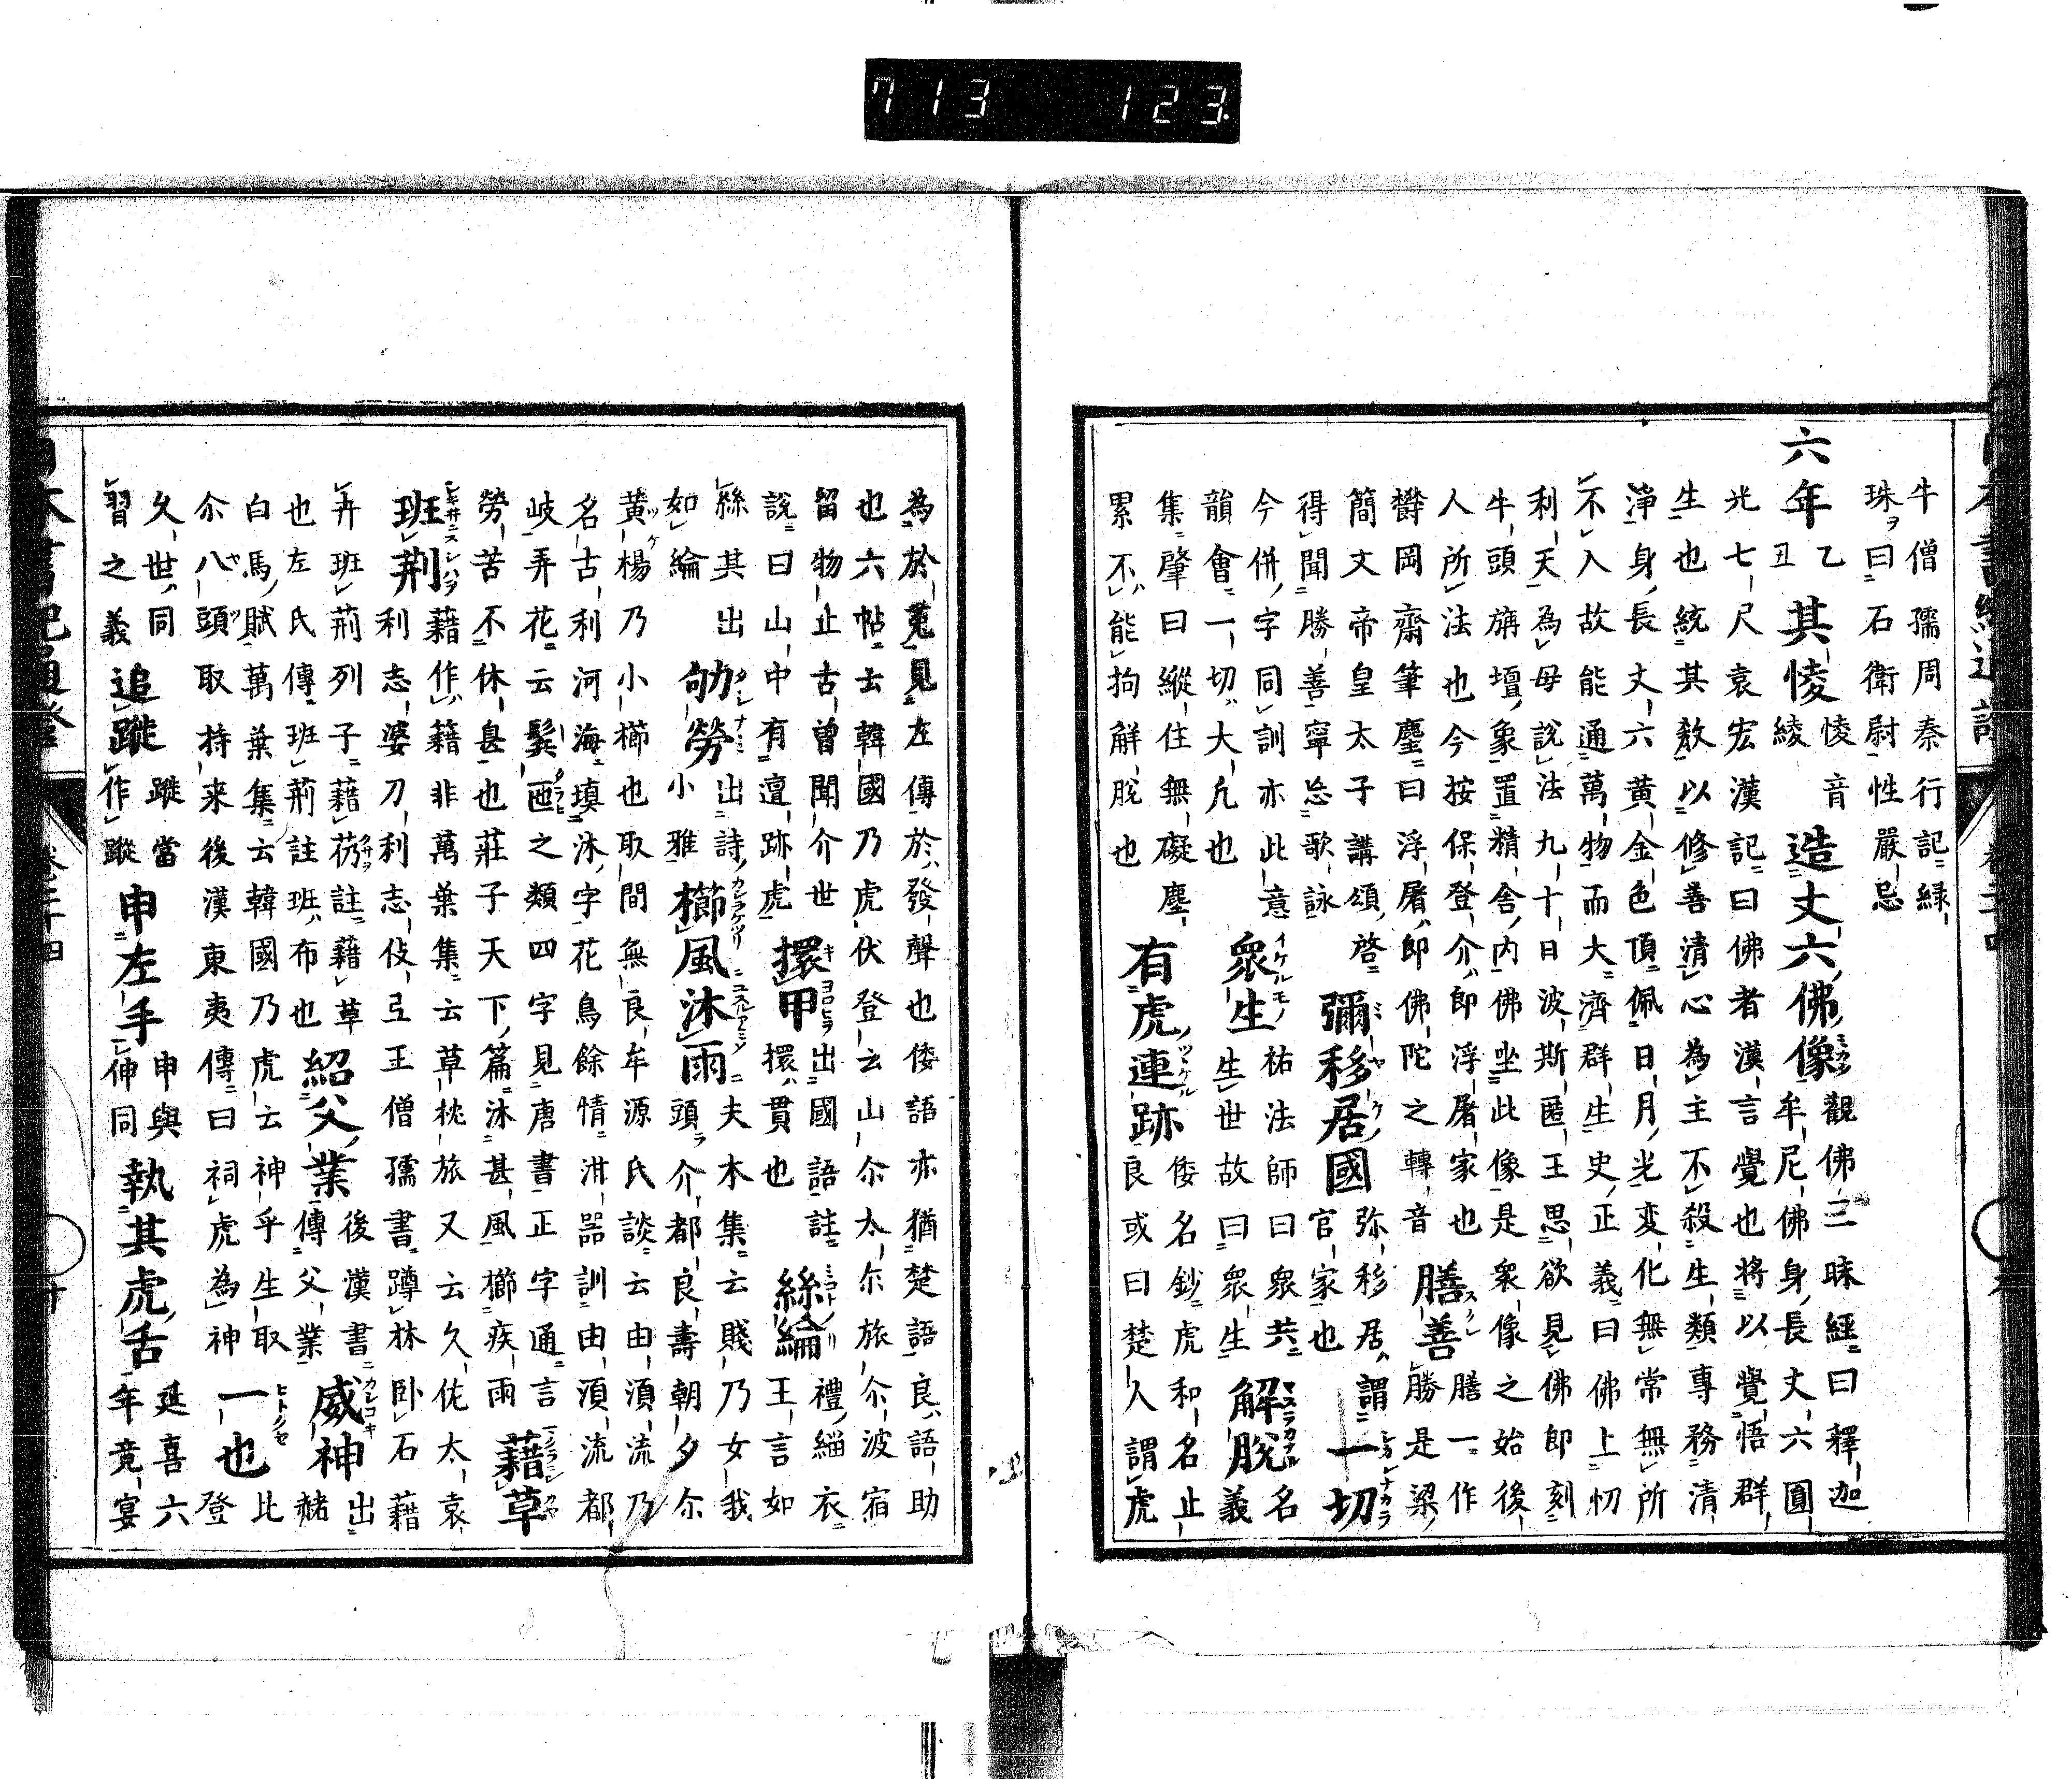 713 123
牛僧孺周秦行記緑
珠ヲ曰石衛尉性嚴忌
六年乙丑其悷悷音綾造丈六佛像觀佛三昧經曰釋迦
牟尼佛身長丈六圓
光七尺袁宏漢記曰佛者漢言覺也將以覺悟群
生也統其教以修善清心為主不殺生類專務清
淨身長丈六黄金色頂佩日月光変化無常無所
不入故能通萬物而大濟群生史正義曰佛上忉
利天為母說法九十日波斯匿王思欲見佛即刻
牛頭旃壇象置精舎内佛坐此像是衆像之始後
人所法也今按保登介即浮屠家也膳善膳一作
欝岡齋筆麈曰浮屠即佛陀之轉音勝是梁
簡文帝皇太子講頌啓彌移居國弥移居謂官家也一切
得聞勝善寧忘歌詠
今併字同訓亦此意
韻會一切大凡也衆生祐法師曰衆共生世故曰衆生解脫名義
集肇曰縱任無礙塵
累不能拘解脫也有虎連跡倭名鈔虎和名止
良或曰楚人謂虎
為於菟見左傳於發聲也倭語亦猶楚語良語助
也六帖去韓國乃虎伏登云山尒太尓旅尒波宿
留物止古曽聞介世擐甲出國語註擐貫也絲綸禮緇衣王言如
說曰山中有遺跡虎
絲其出如綸劬勞出詩小雅櫛風沐雨夫木集云賤乃女我
頭ラ介都良壽朝夕尓
黄楊乃小櫛也取間無良牟源氏談云由湏流乃
名古利河海瑱沐字花鳥餘情泔器訓由湏流都
岐弄花云髪匜之類四字見唐書正字通言藉草
勞苦不休息也莊子天下篇沐甚風櫛疾雨
班荆藉作籍非萬葉集云草枕旅又云久佐太袁
利志婆刀利志伎弖王僧孺書蹲林卧石藉
卉班荊列子藉芿註藉草紹父業後漢書傳父業威神出赭
也左氏傳班荊註班布也
白馬賦萬葉集云韓國乃虎云神乎生取一也比登
尒八頭取持来後漢東夷傳曰祠虎為神
久世同追蹤蹤當作蹤申左手申與伸同執其虎舌延喜六
習之義年竟宴